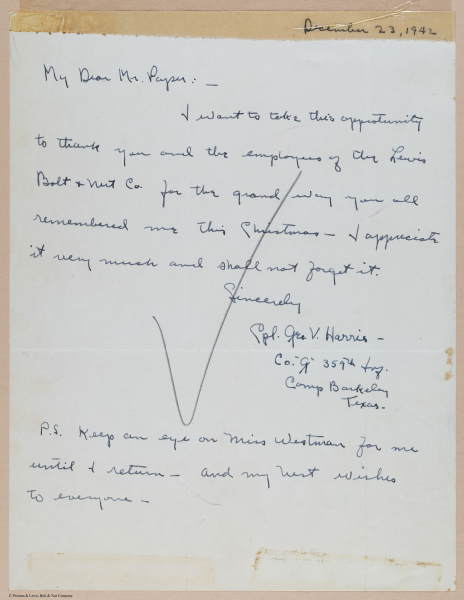 December 23, 1942
My Dear Mr. Payser: —
I want to take this opportunity
to thank you and the employees of the Lewis
Bolt & Nut Co. for the grand way you all
remembered me this Christmas — I appreciate
it very much and shall not forget it.
Sincerely
Cpl. Geo. V. Harris —
Co. "G" 359th Inf.
Camp Barkeley
Texas.
P.S. Keep an eye on Miss Westman for me
until I return — and my best wishes
to everyone —
& Lewis Bolt & Nut Company